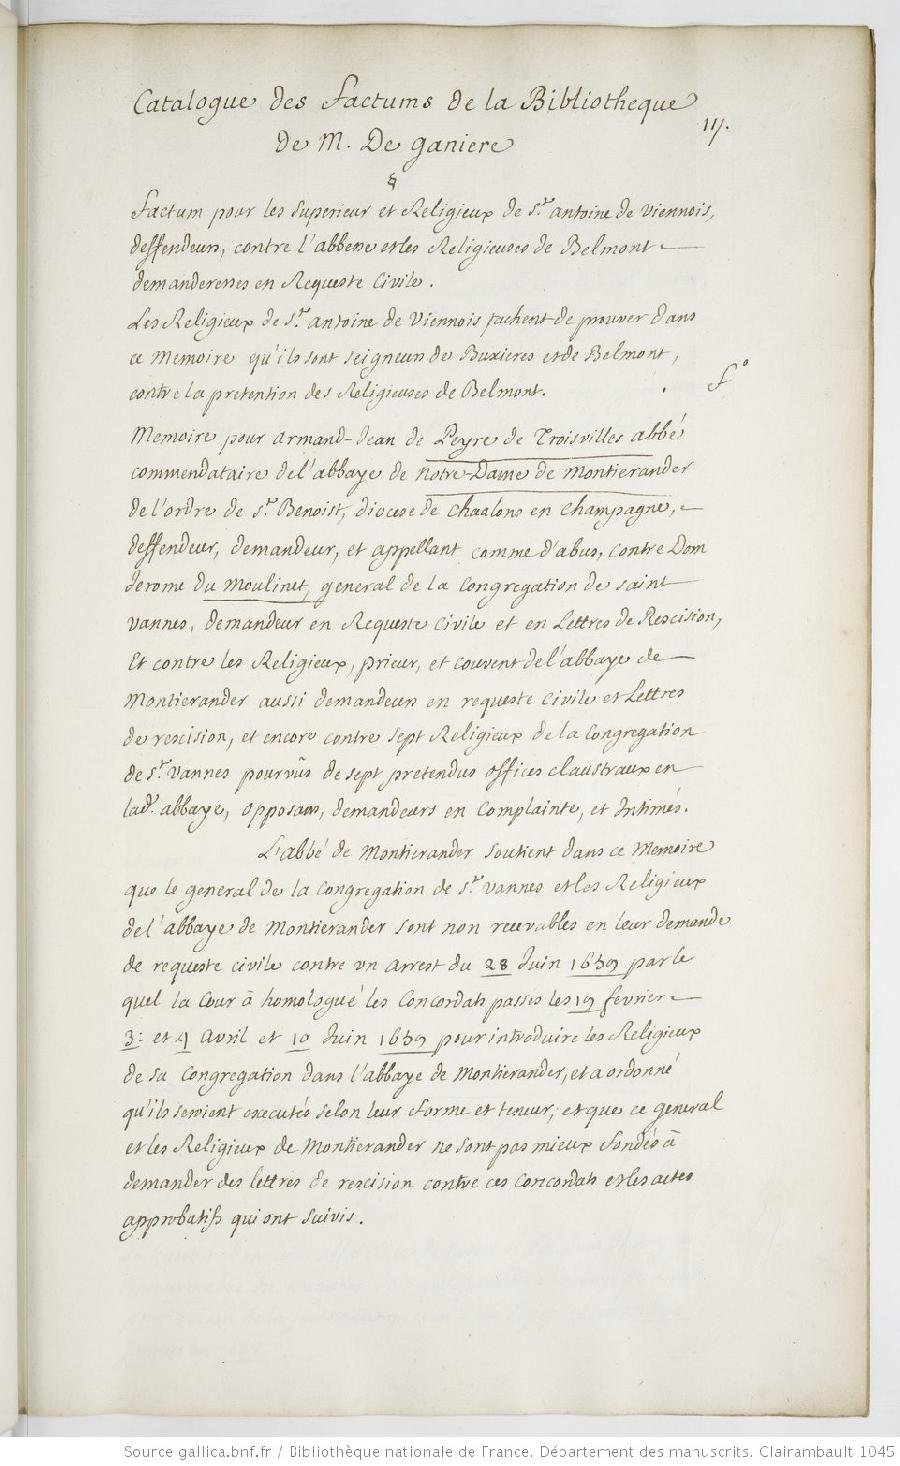 Catalogue des factums de la Bibliotheque
de M. De ganiere
§
factum pour les superieur et Religieux de St. antoine de Viennois,
deffendeurs, contre l'abbesse et les Religieuses de Belmont
demanderesses en Requeste Civile.
Les Religieux de St. antoine de Viennois tachent de prouver dans
ce Memoire qu'ils sont seigneurs de Buxieres et de Belmont,
contre la pretention des Religieuses de Belmont.
fo
Memoire pour armand-Jean de Peyre de Troisvilles abbé
commendataire de l'abbaye de Notre-Dame de Montierander
de l'ordre de St. Benoist, diocese de Chaalons en Champagne,
deffendeur, demandeur, et appellant comme d'abus, contre Dom
Jerome du Moulinet, general de la Congregation de saint
vannes, demandeur en Requeste Civile et en Lettres de Rescision,
Et contre les Religieux, prieur, et couvent de l'abbaye de
Montierander aussi demandeurs en requeste Civile et Lettres
de rescision, et encore contre sept Religieux de la Congregation
de St. Vannes pourvûs de sept pretendus offices claustraux en
lad. abbaye, opposans, demandeurs en Complainte, et Intimés.
L'abbé de Montierander soutient dans ce Memoire
que le general de la Congregation de St. Vannes et les Religieux
de l'abbaye de Montierander sont non recevables en leur demande
de requeste civile contre un arrest du 28 Juin 1659 par le
quel la Cour à homologué les Concordats passés les 19 fevrier
3: et 4 avril et 10 Juin 1659 pour introduire les Religieux
de sa Congregation dans l'abbaye de Montierander, et a ordonné
qu'ils seroient executés selon leur forme et teneur, et que ce general
et les Religieux de Montierander ne sont pas mieux fondés à
demander des lettres de rescision contre ces Concordats et les actes
approbatifs qui ont suivis.
Source gallica.bnf.fr / Bibliothèque nationale de France. Département des manuscrits. Clairambault 1045